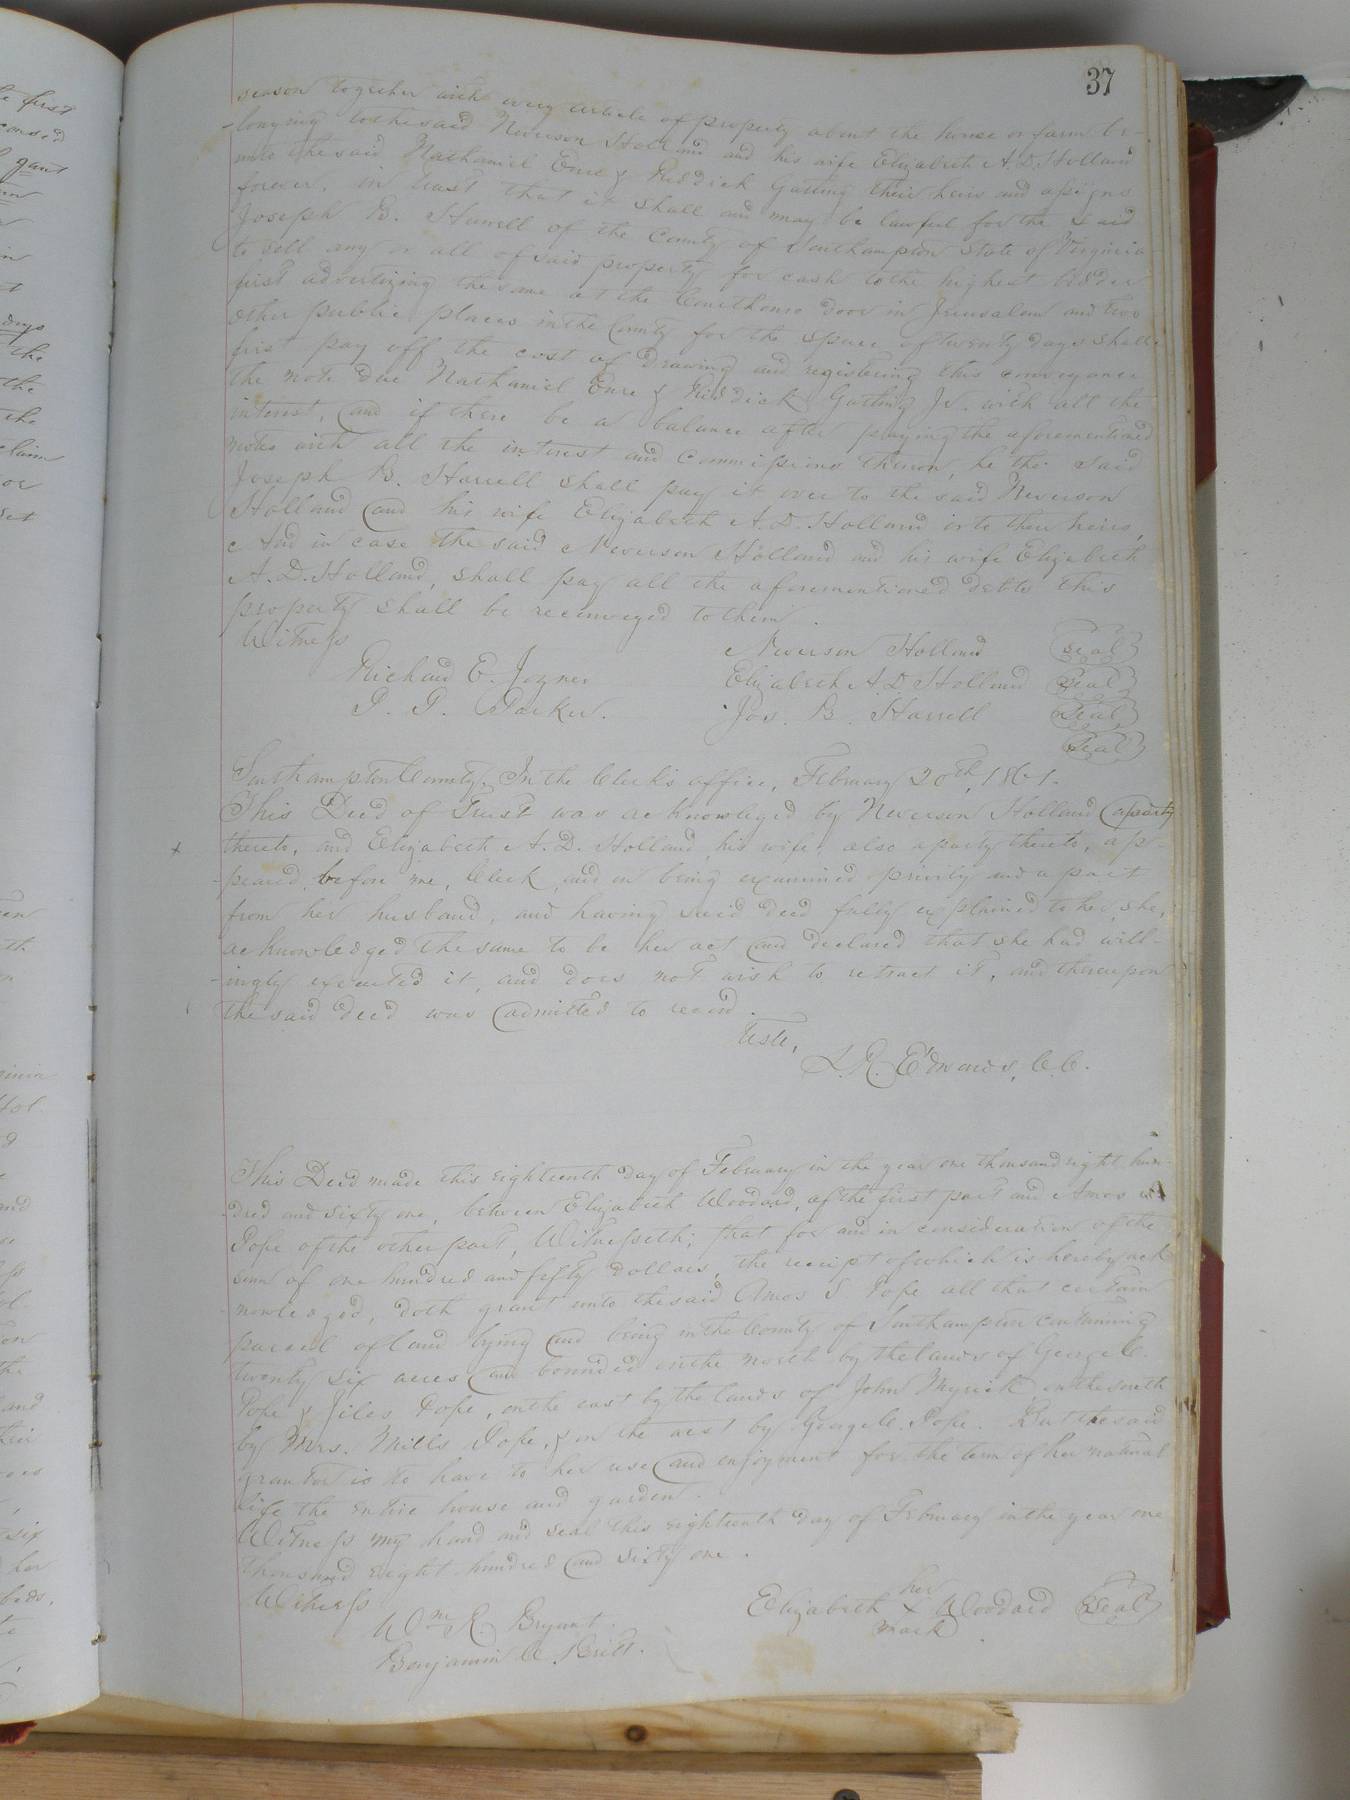 37
season together with every article of property about the house or farm be-
-longing to the said Neverson Holland and his wife Elizabeth A. D. Holland
unto the said Nathaniel Eure & Riddick Gatling their heirs and assigns
forever, in trust that it shall and may be lawful for the said
Joseph B. Harrell of the County of Southampton State of Virginia
to sell any or all of said property for cash to the highest bidder
first advertizing the same at the Courthouse door in Jerusalem and two
other public places in the County for the space of twenty days shall
first pay off the cost of drawing and registering this conveyance
the note due Nathaniel Eure & Riddick Gatling Jr. with all the
interest, and if there be a balance after paying the aforementioned
notes with all the interest and commissions thereon, he the said
Joseph B. Harrell shall pay it over to the said Neverson
Holland and his wife Elizabeth A. D. Holland or to their heirs,
And in case the said Neverson Holland and his wife Elizabeth
A. D. Holland, shall pay all the aforementioned debts this
property shall be reconveyed to them.
Witness
Neverson Holland seal
Richard E. Joyner Elizabeth A. D. Holland seal
P. T. Parker. Jos. B. Harrell seal
seal
Southampton County. In the Clerk's office, February 20th, 1861.
This Deed of Trust was acknowleged by Neverson Holland a party
thereto, and Elizabeth A. D. Holland, his wife, also a party thereto, ap-
-peared before me, Clerk, and on being examined privily and apart
from her husband, and having said deed fully explained to her, she,
acknowledged the same to be her act and declared that she had will-
-ingly executed it, and does not wish to retract it, and thereupon
the said deed was admitted to record.
Teste,
L. R. Edwards, C. C.
This Deed made this eighteenth day of February in the year one thousand eight hun-
-dred and sixty one, between Elizabeth Woodard, of the first part and Amos
Pope of the other part, Witnesseth; that for and in consideration of the
sum of one hundred and fifty dollars, the receipt of which is hereby ack
nowledged, doth grant unto the said Amos S Pope all that certain
parcel of land lying and being in the County of Southampton containing
twenty six acres and bounded on the north by the lands of George C.
Pope & Jiles Pope, on the east by the lands of John Myrick, on the south
by Mrs. Mills Pope, & on the west by George C. Pope. But the said
grantor is to have to her use and enjoyment for the term of her natural
life the entire house and garden.
Witness my hand and seal this eighteenth day of February in the year one
thousand eight hundred and sixty one.
Witness
her
Wm R. Bryant. Elizabeth x Woodard Seal
mark
Benjamin C. Britt.